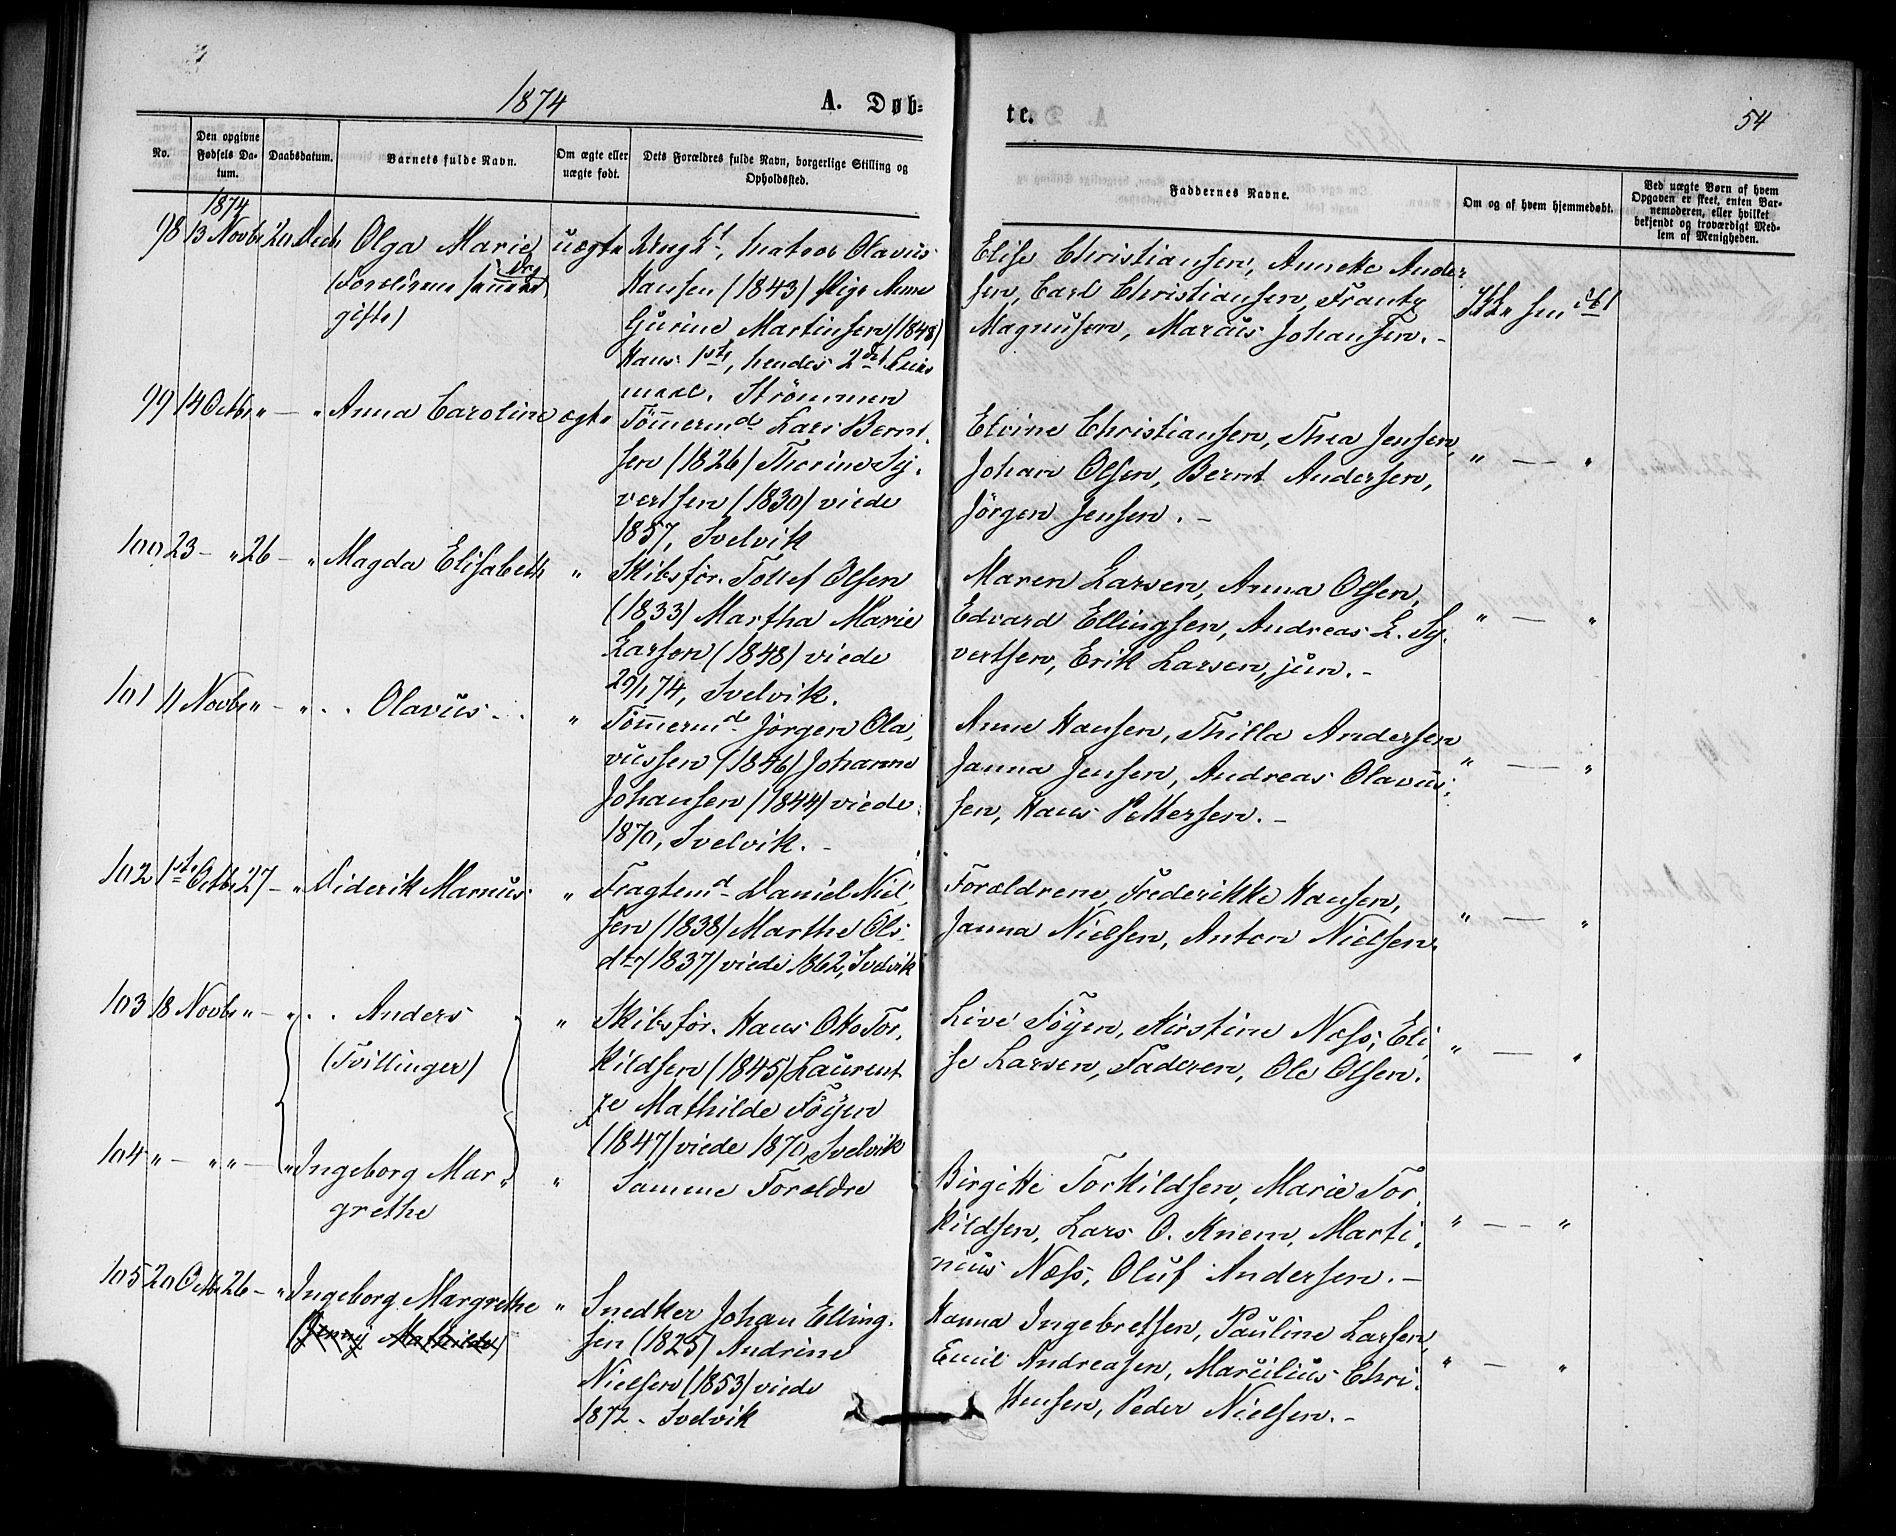 1874
A. Døb-
te.
54
No.
Den opgivne Fødsels Datum.
Daabsdatum.
Barnets fulde Navn.
Om ægte eller uægte født.
Dets Forældres fulde Navn, borgerlige Stilling og Opholdssted.
Faddernes Navne.
Om og af hvem hjemmedøbt.
Ved uægte Børn af hvem Opgaven er skeet, enten Barnemoderen, eller hvilket bekjendt og troværdigt Medlem af Menigheden.
1874
98 13 Novbr 20 Decbr Olga Marie uægte Ungk., matros Olavus
(Forældrene
gifte)
Hansen (1843) Pige Anne
Gurine Martinsen (1848)
Hans 1ste, hendes 2det Leiers
maal. Strømmen
Elise Christiansen, Annette Ander
sen, Carl Christiansen, Frantz
Magnusen, Marius Johansen. -
Ikke hmdbt
99 14 Octbr " — " Anna Caroline ægte Tömermd Lars Bernt
sen (1826) Thorine Sy-
vertsen (1830) viede
1857, Svelvik
Elvine Christiansen, Thea Jensen,
Johan Olsen, Bernt Andersen,
Jörgen Jensen. -
" — "
100 23 — " 26 — " Magda Elisabeth " Skibsför. Tollef Olsen
(1833) Martha Marie
Larsen (1848) viede
20/1 74, Svelvik.
Maren Larsen, Anna Olsen,
Edvard Ellingsen, Andreas L. Sy-
vertsen, Erik Larsen, jun. -
" — "
101 11 Novbr " — " Olavus " Tömermd Jörgen Ola-
vussen (1846) Johanne
Johansen (1844) viede
1870, Svelvik. -
Anne Hansen, Thilla Andersen
Janna Jensen, Andreas Olavus-
sen, Hans Pettersen. -
" — "
102 1ste Octbr 27 — " Diderik Marius " Fragtemd Daniel Niel-
sen (1838) Marthe Ols-
dtr (1837) viede 1862, Svelvik
Forældrene, Frederikke Hansen,
Janna Nielsen, Anton Nielsen.
" — "
103 18 Novbr " — " Anders " Skibsför. Hans Otto Tor-
(Tvillinger)
kildsen (1845) Laurent
ze Mathilde Föyen
(1847) viede 1870, Svelvik
Live Föyen, Kirstine Næss, Eli-
se Larsen, Faderen, Ole Olsen.
" — "
104 " — " " — " Ingeborg Mar-
grethe
" Samme Forældre
Birgitte Torkildsen, Marie Tor-
kildsen, Lars O. Knem, Marti-
nius Næss, Oluf Andersen. -
" — "
105 20 Octbr 26 — " Ingeborg Margrethe " Snedker Johan Elling-
(Jenny Mathilde)
sen (1825) Andrine
Nielsen (1853) viede
1872 - Svelvik
Hanna Ingebretsen, Pauline Larsen,
Emil Andreasen, Marcilius Chri-
stensen, Peder Nielsen. -
" — "